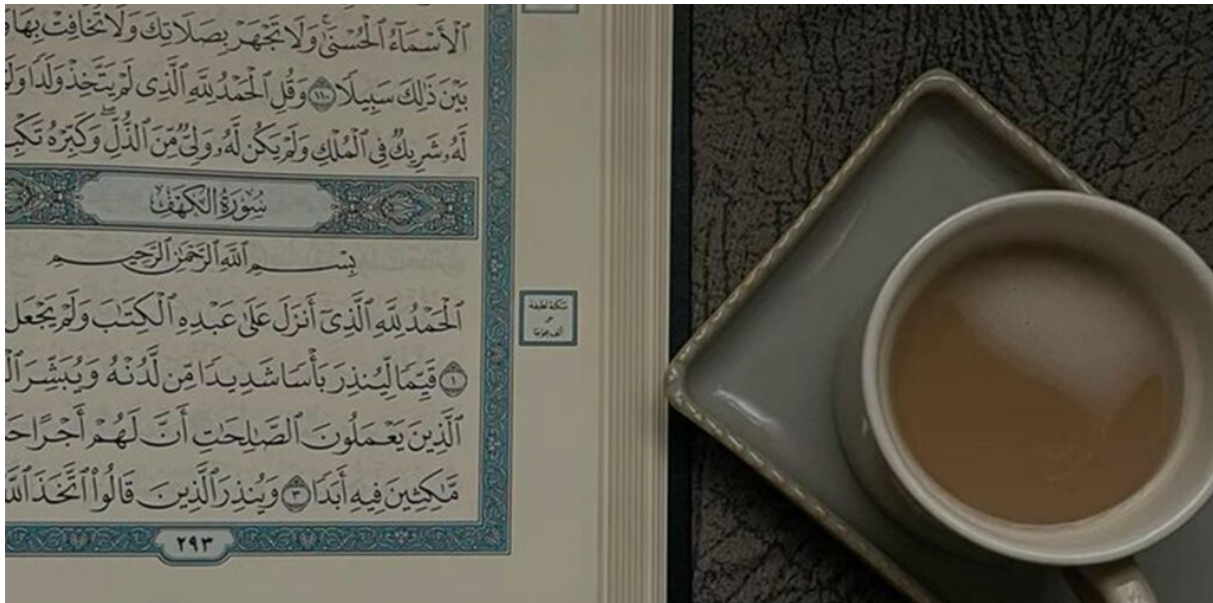 ٱلْأَسْمَآءُ ٱلْحُسْنَىٰ ۚ وَلَا تَجْهَرْ بِصَلَاتِكَ وَلَا تُخَافِتْ بِهَا
بَيْنَ ذَٰلِكَ سَبِيلًا ١١٠ وَقُلِ ٱلْحَمْدُ لِلَّهِ ٱلَّذِى لَمْ يَتَّخِذْ وَلَدًا
لَّهُۥ شَرِيكٌ فِى ٱلْمُلْكِ وَلَمْ يَكُن لَّهُۥ وَلِىٌّ مِّنَ ٱلذُّلِّ ۖ وَكَبِّرْهُ
سُورَةُ الكَهْفِ
بِسْمِ ٱللَّهِ ٱلرَّحْمَٰنِ ٱلرَّحِيمِ
ٱلْحَمْدُ لِلَّهِ ٱلَّذِىٓ أَنزَلَ عَلَىٰ عَبْدِهِ ٱلْكِتَٰبَ وَلَمْ يَجْعَل
١ قَيِّمًا لِّيُنذِرَ بَأْسًا شَدِيدًا مِّن لَّدُنْهُ وَيُبَشِّرَ
ٱلَّذِينَ يَعْمَلُونَ ٱلصَّٰلِحَٰتِ أَنَّ لَهُمْ أَجْرًا
مَّٰكِثِينَ فِيهِ أَبَدًا ٣ وَيُنذِرَ ٱلَّذِينَ قَالُوا۟ ٱتَّخَذَ
٢٩٣